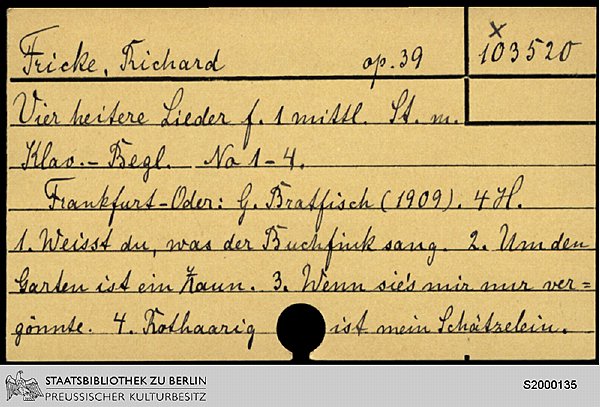 Fricke, Richard op. 39 x 103520
Vier heitere Lieder f. 1 mittl. St. m.
Klav.-Begl. No 1-4.
Frankfurt-Oder: G. Bratfisch (1909). 4 H.
1. Weisst du, was der Buchfink sang. 2. Um den
Garten ist ein Zaun. 3. Wenn sie's mir nur ver=
gönnte. 4. Rothaarig ist mein Schätzelein.
STAATSBIBLIOTHEK ZU BERLIN
PREUSSISCHER KULTURBESITZ
S2000135